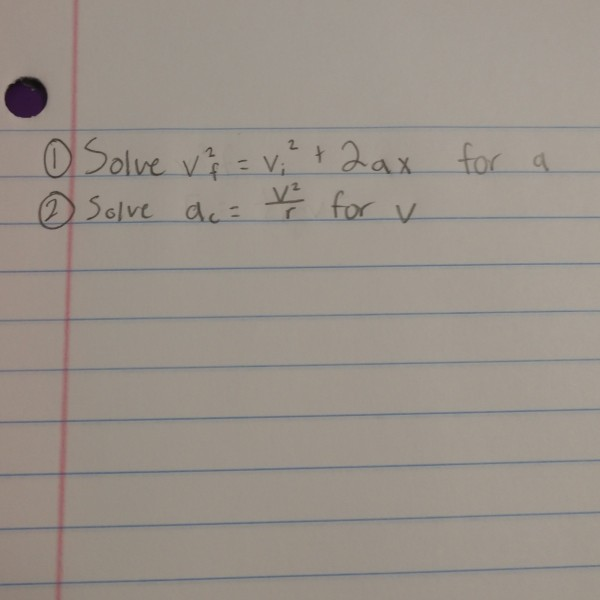 ① Solve v_f^2 = v_i^2 + 2ax for a
② Solve a_c = v^2/r for v